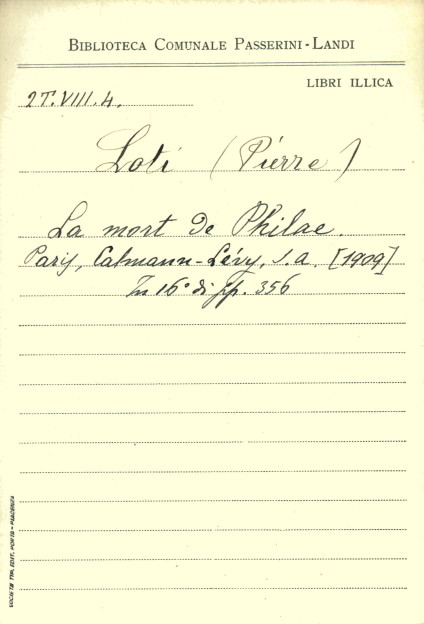 BIBLIOTECA COMUNALE PASSERINI-LANDI
LIBRI ILLICA
2T.VIII.4.
Loti (Pierre)
La mort de Philae.
Paris, Calmann-Lévy, s.a. [1909]
In 16° di pp. 356
SOCIETÀ TIP. EDIT. PORTA - PIACENZA